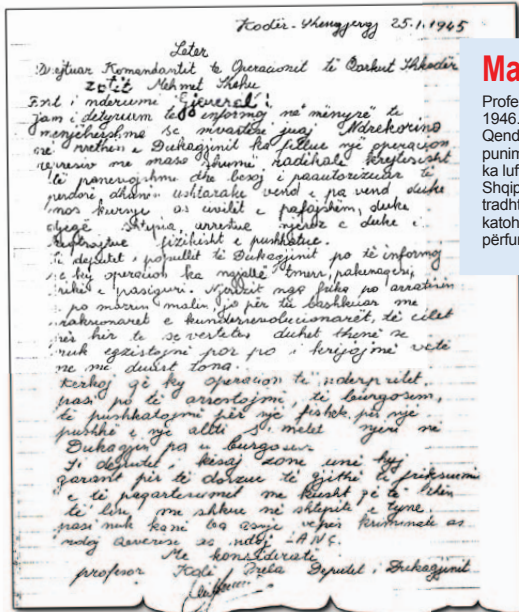 Kodër-Shengjergj 25.1.1945
Leter
Drejtuar Komandantit te Operacionit të Qarkut Shkodër
Zotit Mehmet Shehu
Fort i nderuemi Gjeneral!
jam i detyruem te informoj në mënyrë te
menjëhershme se nvartësi juaj Ndrekorino
në rrethin e Dukagjinit ka fillue një operacion
represiv me masa shumë radikale krejtësisht
të panevojshme dhe besoj i paautorizuar të
perdorë dhunën ushtarake vend e pa vend duke
mos kursye as civilët e pafajshëm, duke
djegë shtëpia, arrestue njerëz e duke i
keqtrajtue fizikisht e pushkatue.
Si deputet i popullit të Dukagjinit po të informoj
se ky operacion ka ngjallë tmerr, pakënaqësi,
frikë e pasiguri. Njerëzit nga frika po arratisen
po marrin malin, jo për tu bashkuar me
reaksionarët e kundërrevolucionarët, të cilët
për hir te së vertetës duhet thënë se
nuk egzistojnë por po i krijojmë vetë
ne me duart tona.
Kerkoj që ky operacion të nderpritet,
pasi po të arrestojmë, të burgosim,
të pushkatojmë për një fishek, për një
pushkë e një alltí s'metet njeri në
Dukagjin pa u burgosur.
Si deputet i kësaj zone unë hyj
garant për të dorzue të gjithë të friksuemit
e të paqartësuemit me kusht që të lihen
të lirë, me shkue në shtëpitë e tyne
pasi nuk kanë ba asnjë vepër kriminale as
ndaj Qeverisë as ndaj LANÇ.
Me konsideratë
profesor Kolë Prela Deputet i Dukagjinit
Ma
Profe
1946.
Qend
punim
ka luf
Shqip
tradht
katoh
përfun